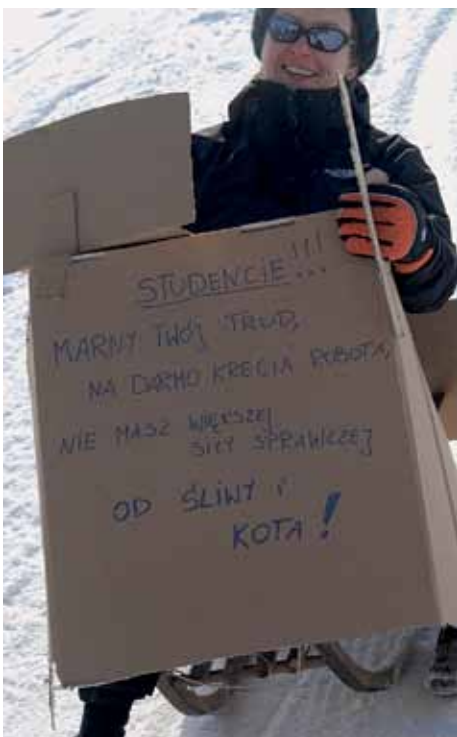 STUDENCIE!!!
MARNY TWÓJ TRUD,
NA DARMO KRECIA ROBOTA,
NIE MASZ WIĘKSZEJ
SIŁY SPRAWCZEJ
OD ŚLINY i
KOTA!